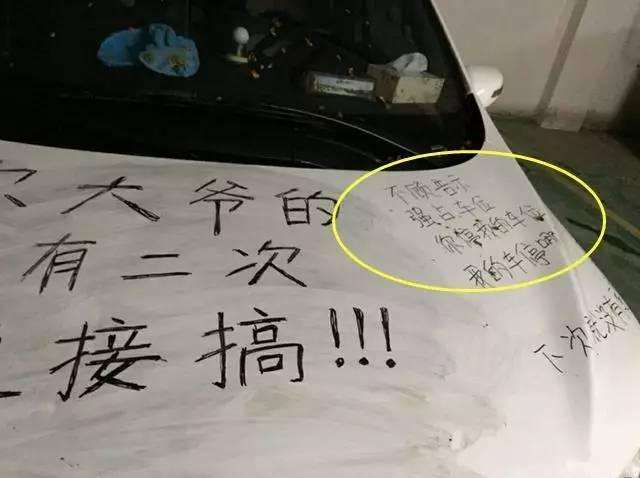 大爷的
有二次
接搞!!!
不顾
强占车位
你停我的车位
我的车停哪
下次就没有